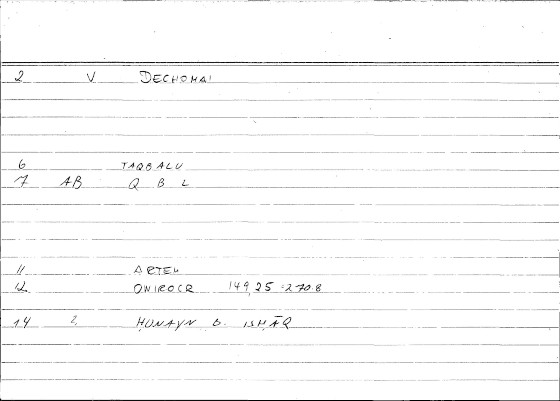 2 V DECHOMAI
6 TAQBALU
7 AB Q B L
11 ARTEM
12 ONIROCR 149,25 = 270.8
14 2 ḤUNAYN B. ISḤĀQ